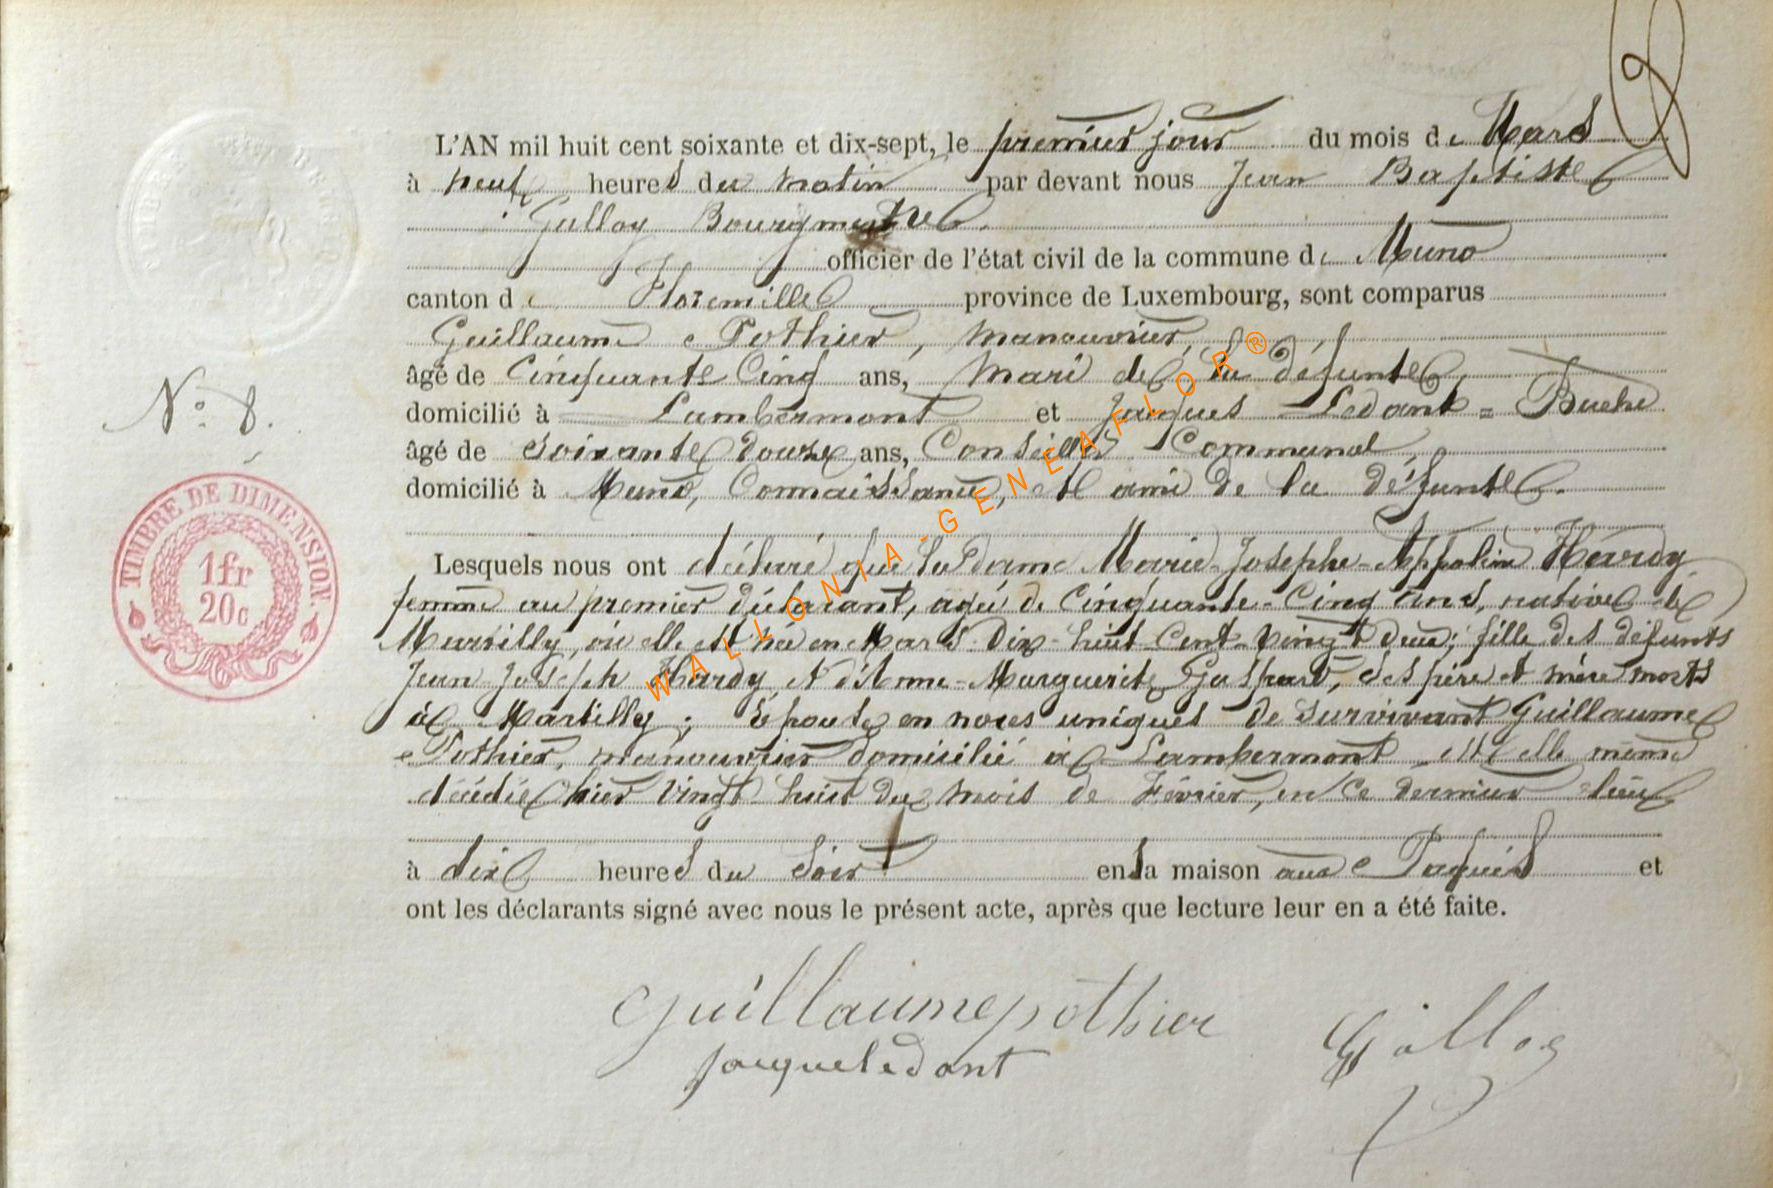 L'AN mil huit cent soixante et dix-sept, le premier jour du mois de Mars
à neuf heures du matin par devant nous Jean Baptiste
Galloy Bourgmestre
officier de l'état civil de la commune de Muno
canton de Florenville province de Luxembourg, sont comparus
Guillaume Pothier, manouvrier,
âgé de Cinquante Cinq ans, Mari de la défunte,
domicilié à Lambermont et Jacques Ledant = Buche
âgé de soixante douze ans, Conseiller Communal,
domicilié à Muno, Connaissance, et ami de la défunte.
N° 8.
TIMBRE DE DIMENSION.
1fr
20c
Lesquels nous ont déclaré que la Dame Marie-Josephe-Appoline Hardy
femme au premier déclarant, agée de Cinquante-Cinq ans, native de
Martilly, où elle est née en Mars Dix-huit-Cent-Vingt deux; fille des défunts
Jean Joseph Hardy, et d'Anne-Marguerite Gaspard, ses père et mère morts
à Martilly; Epouse en noces uniques de survivant Guillaume
Pothier, manouvrier domicilié à Lambermont est elle même
décédée hier vingt huit du mois de Février, en ce dernier lieu
à dix heures du soir en sa maison aux Paquis et
ont les déclarants signé avec nous le présent acte, après que lecture leur en a été faite.
guillaume pothier
Galloy
jacque ledant
WALLONIA-GENEAFLOR®